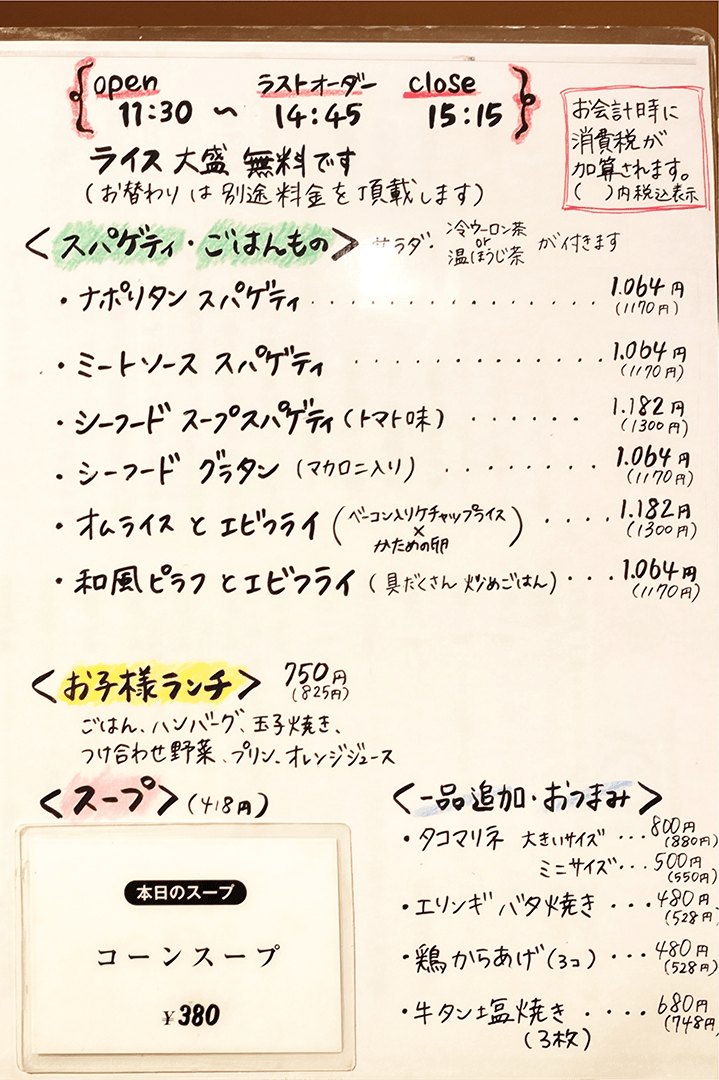 open ラストオーダー close
11:30 〜 14:45 15:15
お会計時に
消費税が
加算されます。
( )内税込表示
ライス 大盛 無料です
(お替わりは別途料金を頂載します)
<スパゲティ・ごはんもの> サラダ・冷ウーロン茶 or 温ほうじ茶 が付きます
・ナポリタン スパゲティ・・・・・・・・・・・・・・・ 1.064円 (1170円)
・ミートソース スパゲティ ・・・・・・・・・・・・・ 1.064円 (1170円)
・シーフード スープスパゲティ(トマト味) ・・・・・・ 1.182円 (1300円)
・シーフード グラタン (マカロニ入り) ・・・・・・・・ 1.064円 (1170円)
・オムライス と エビフライ (ベーコン入りケチャップライス × かための卵) ・・・・ 1.182円 (1300円)
・和風ピラフ とエビフライ (具だくさん 炒めごはん)・・・ 1.064円 (1170円)
<お子様ランチ> 750円 (825円)
ごはん、ハンバーグ、玉子焼き、
つけ合わせ野菜、プリン、オレンジジュース
<スープ>(418円)
本日のスープ
コーンスープ
¥380
<一品追加・おつまみ>
・タコマリネ 大きいサイズ ・・・800円 (880円)
ミニサイズ・・・500円 (550円)
・エリンギ バタ焼き ・・・480円 (528円)
・鶏からあげ(3コ) ・・・480円 (528円)
・牛タン塩焼き ・・・・680円 (748円)
(3枚)